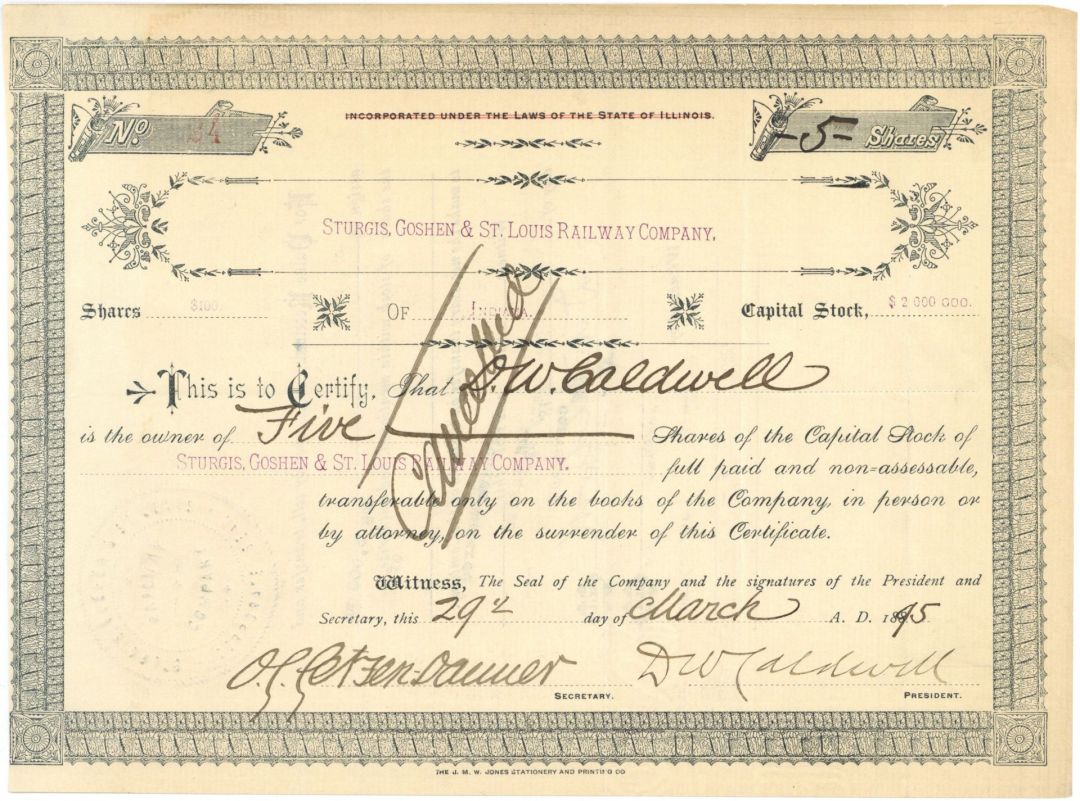 No. 24
INCORPORATED UNDER THE LAWS OF THE STATE OF ILLINOIS.
-5- Shares
STURGIS, GOSHEN & ST. LOUIS RAILWAY COMPANY,
Shares $100 OF INDIANA. Capital Stock, $2 000 000.
Cancelled
This is to Certify, That D.W. Caldwell
is the owner of Five Shares of the Capital Stock of
STURGIS, GOSHEN & ST. LOUIS RAILWAY COMPANY. full paid and non-assessable,
transferable only on the books of the Company, in person or
by attorney, on the surrender of this Certificate.
Witness, The Seal of the Company and the signatures of the President and
Secretary, this 29th day of March A. D. 1895
SECRETARY. D W Caldwell PRESIDENT.
THE J. M. W. JONES STATIONERY AND PRINTING CO